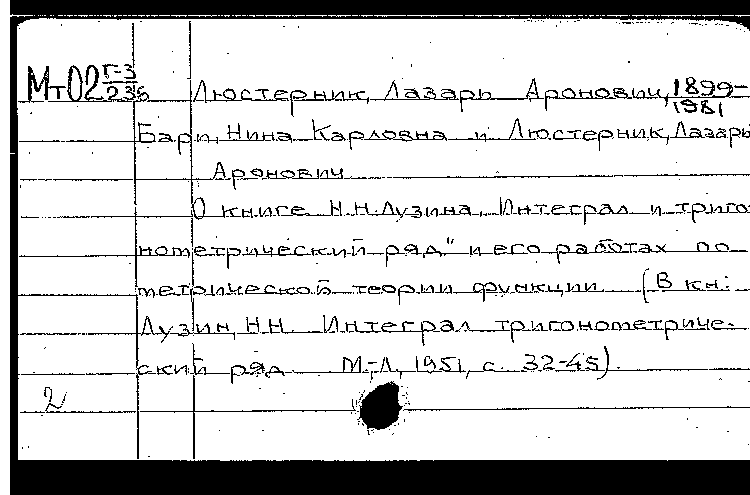 Мт02 Г-3/236 Люстерник, Лазарь Аронович, 1899-
1981
Бари, Нина Карловна и Люстерник, Лазарь
Аронович
О книге Н.Н.Лузина „Интеграл и триго-
нометрический ряд" и его работах по
метрической теории функции (В кн:
Лузин, Н.Н. Интеграл тригонометриче-
ский ряд М.-Л, 1951, с. 32-45).
2